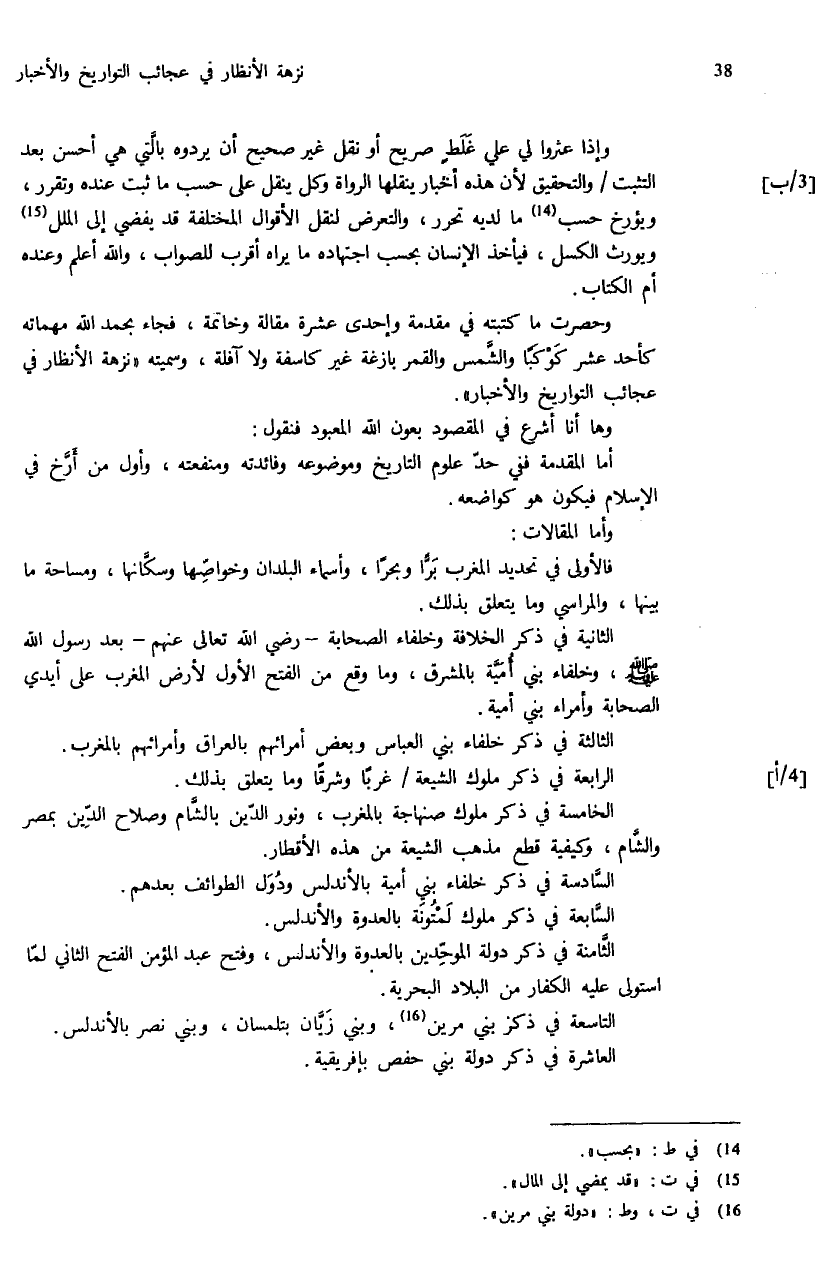 38 نزهة الأنظار في عجائب التواريخ والأخبار
وإذا عثروا لي علي غَلَطٍ صريح أو نقل غير صحيح أن يردوه بالَّتي هي أحسن بعد
[3/ب] التثبت / والتحقيق لأن هذه أخبار ينقلها الرواة وكل ينقل على حسب ما ثبت عنده وتقرر ،
ويؤرخ حسب(14) ما لديه تحرر ، والتعرض لنقل الأقوال المختلفة قد يفضي إلى الملل(15)
ويورث الكسل ، فيأخذ الإنسان بحسب اجتهاده ما يراه أقرب للصواب ، والله أعلم وعنده
أم الكتاب .
وحصرت ما كتبته في مقدمة وإحدى عشرة مقالة وخاتمة ، فجاء بحمد الله مهماته
كأحد عشر كَوْكَبًا والشَّمس والقمر بازغة غير كاسفة ولا آفلة ، وسميته «نزهة الأنظار في
عجائب التواريخ والأخبار» .
وها أنا أشرع في المقصود بعون الله المعبود فنقول :
أما المقدمة ففي حدّ علوم التاريخ وموضوعه وفائدته ومنفعته ، وأول من أَرَّخ في
الإسلام فيكون هو كواضعه .
وأما المقالات :
فالأولى في تحديد المغرب بَرًّا وبحرًا ، وأسماء البلدان وخواصِّها وسكَّانها ، ومساحة ما
بينها ، والمراسي وما يتعلق بذلك .
الثانية في ذكر الخلافة وخلفاء الصحابة – رضي الله تعالى عنهم – بعد رسول الله
ﷺ ، وخلفاء بني أُمَيَّة بالمشرق ، وما وقع من الفتح الأول لأرض المغرب على أيدي
الصحابة وأمراء بني أمية .
الثالثة في ذكر خلفاء بني العباس وبعض أمرائهم بالعراق وأمرائهم بالمغرب .
[4/أ] الرابعة في ذكر ملوك الشيعة / غربًا وشرقًا وما يتعلق بذلك .
الخامسة في ذكر ملوك صنهاجة بالمغرب ، ونور الدّين بالشَّام وصلاح الدِّين بمصر
والشَّام ، وكيفية قطع مذهب الشيعة من هذه الأقطار.
السَّادسة في ذكر خلفاء بني أمية بالأندلس ودُوَل الطوائف بعدهم .
السَّابعة في ذكر ملوك لَمْتُونَة بالعدوة والأندلس .
الثَّامنة في ذكر دولة الموحِّدين بالعدوة والأندلس ، وفتح عبد المؤمن الفتح الثاني لمّا
استولى عليه الكفار من البلاد البحرية .
التاسعة في ذكز بني مرين(16) ، وبني زَيَّان بتلمسان ، وبني نصر بالأندلس .
العاشرة في ذكر دولة بني حفص بإفريقية .
14) في ط : «بحسب» .
15) في ت : «قد يمضي إلى المال» .
16) في ت ، وط : «دولة بني مرين» .